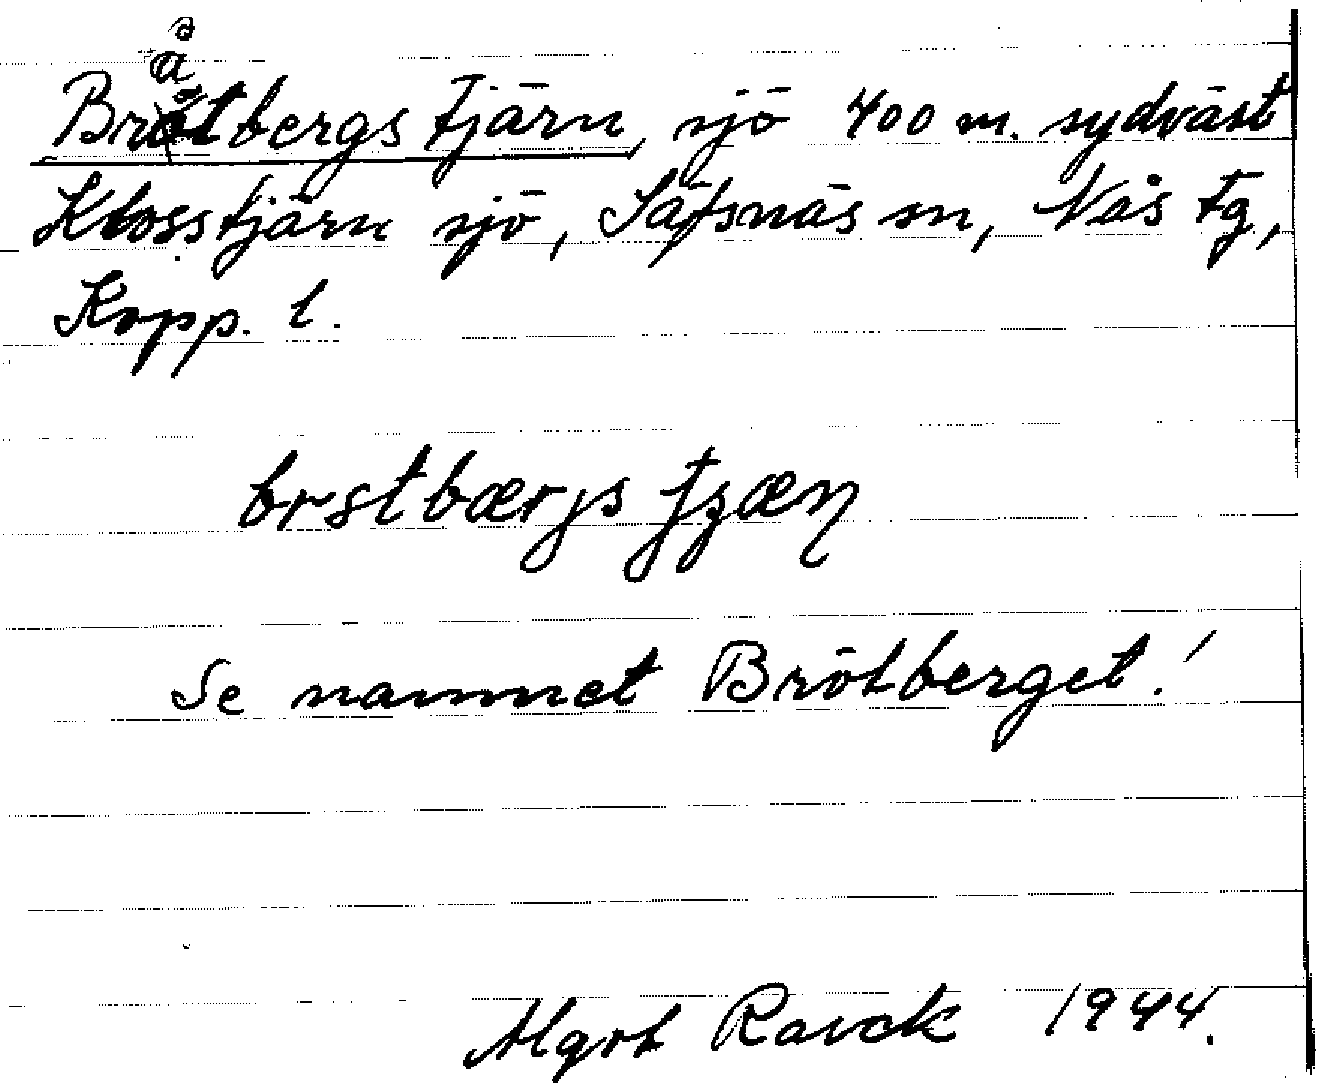 å
Bråtbergstjärn, sjö 400 m. sydväst
Klosstjärn sjö, Säfsnäs sn, Nås tg,
Kopp. l.
Se namnet Brötberget!
Mgrt Ravck 1944.